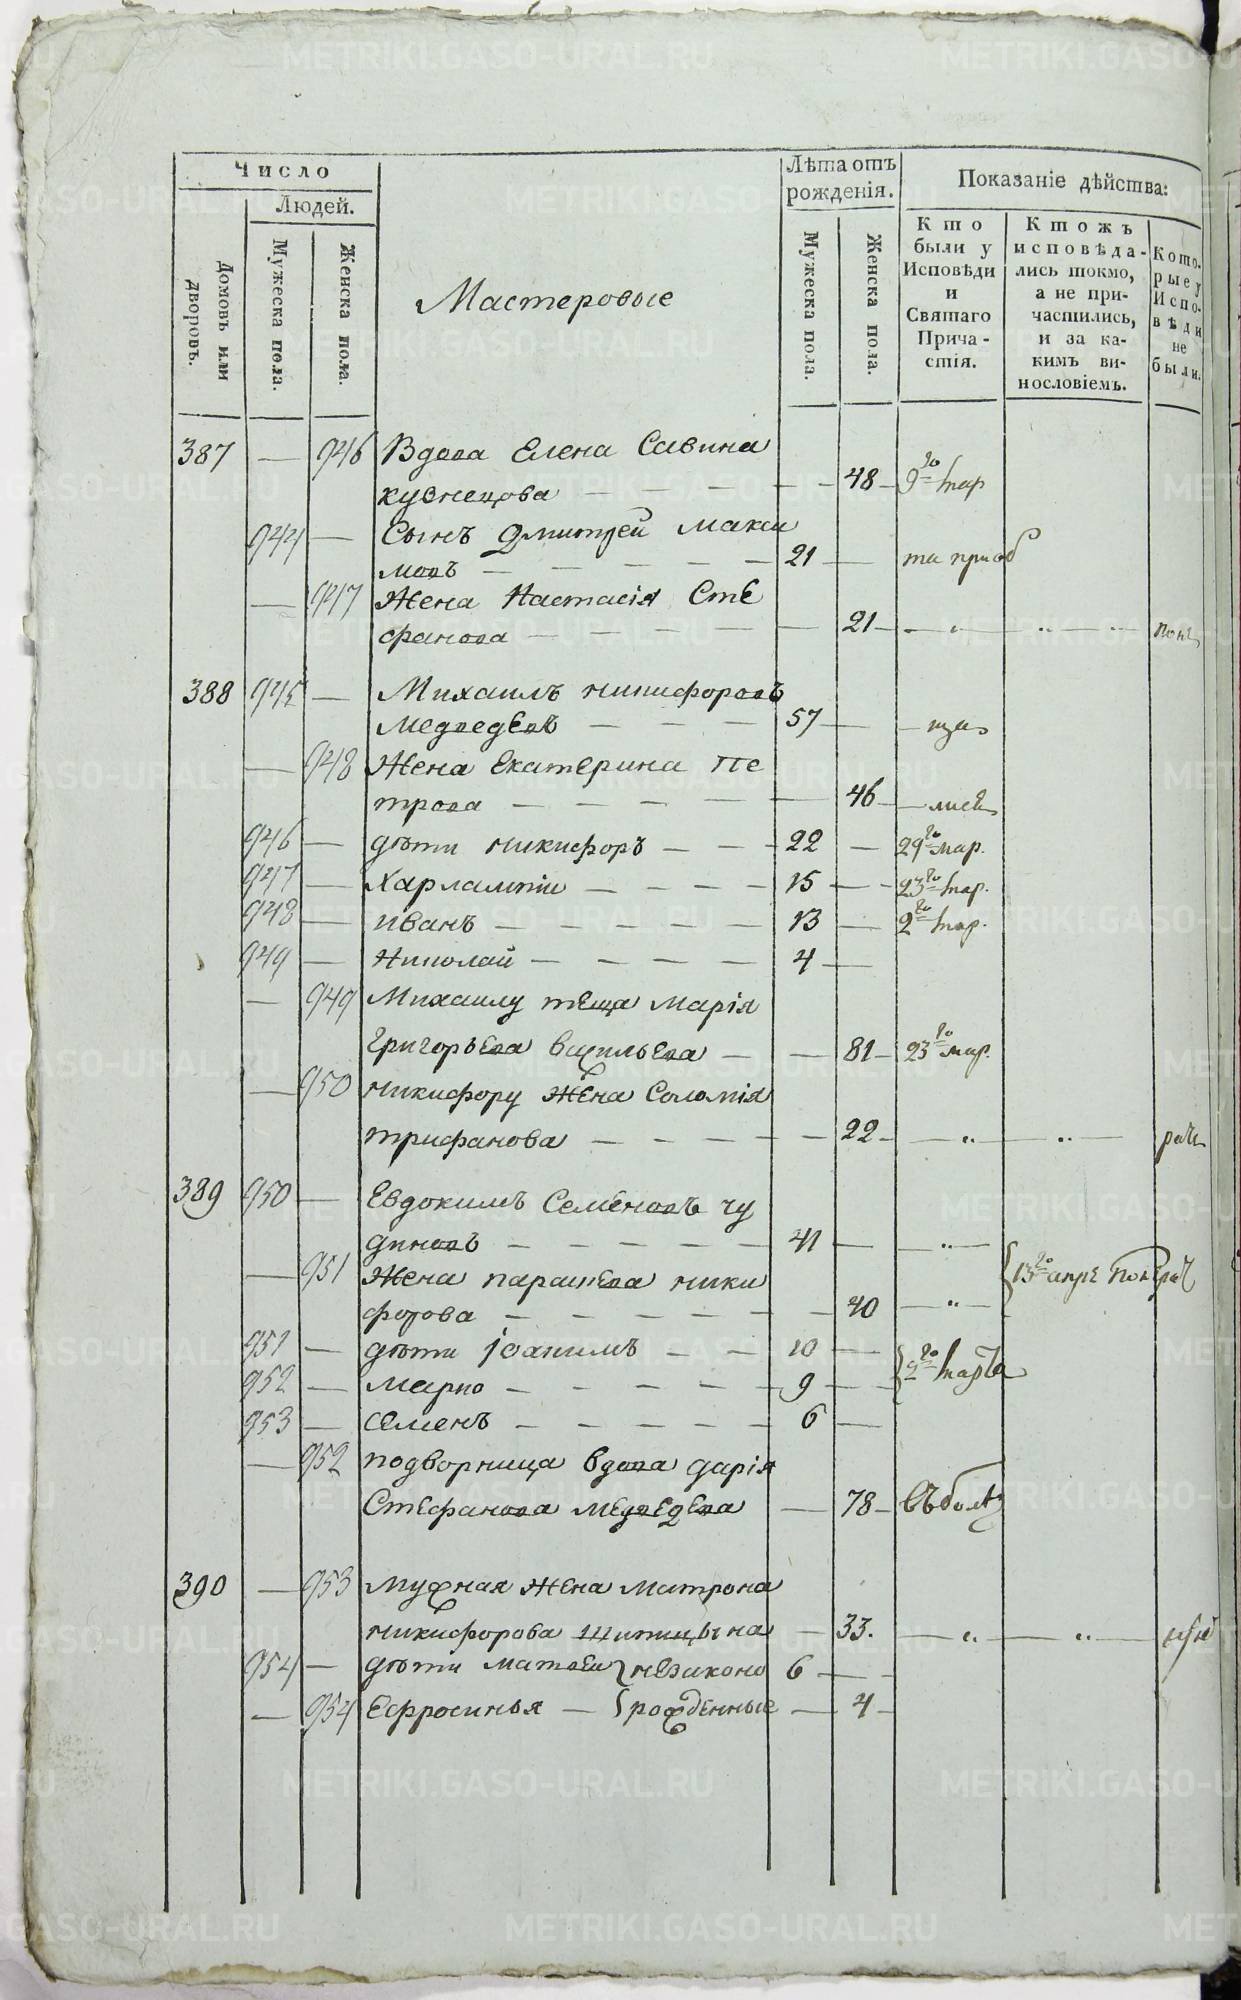 Число
Людей.
Домовъ или дворовъ.
Мужеска пола.
Женска пола.
Мастеровые
Лѣта отъ рожденія.
Мужеска пола.
Женска пола.
Показаніе дѣйства:
Кто были у Исповѣди и Святаго Причастія.
Ктожъ исповѣдались токмо, а не причастились, и за какимъ винословіемъ.
Которые у Исповѣди не были.
387 — 946 Вдова Елена Савина
кузнецова — 48 — 9го мар
944 — Сынъ Дмитрей Макси
мовъ — 21 —
— 947 Жена Настасія Сте
фанова — 21 —
388 945 — Михаилъ никифоровъ
медведевъ — 57 —
— 948 Жена Екатерина Пе
трова — 46 —
946 — дѣти никифоръ — 22 — 29го мар.
947 — Харлампіи — 15 — 23го мар.
948 — иванъ — 13 — 2го мар.
949 — Николай — 4 —
— 949 Михаилу теща марія
григорьева васильева — 81 — 23го мар.
— 950 никифору жена Соломія
трифанова — 22 — „ — „ —
389 950 — Евдокимъ Семеновъ чу
диновъ — 41 — „ —
— 951 Жена парасева ники
форова — 40 — „ — 13го апре
951 — дѣти іоакимъ — 10 — 2го марта
952 — марко — 9 —
953 — семенъ — 6 —
— 952 подворница вдова дарія
Стефанова медведева — 78 — въ болѣз
390 — 953 мужная жена матрона
никифорова шипицына — 33. — „ — „ —
954 — дѣти матвеи незаконо 6 —
— 954 Ефросинья — рожденные — 4 —
METRIKI.GASO-URAL.RU